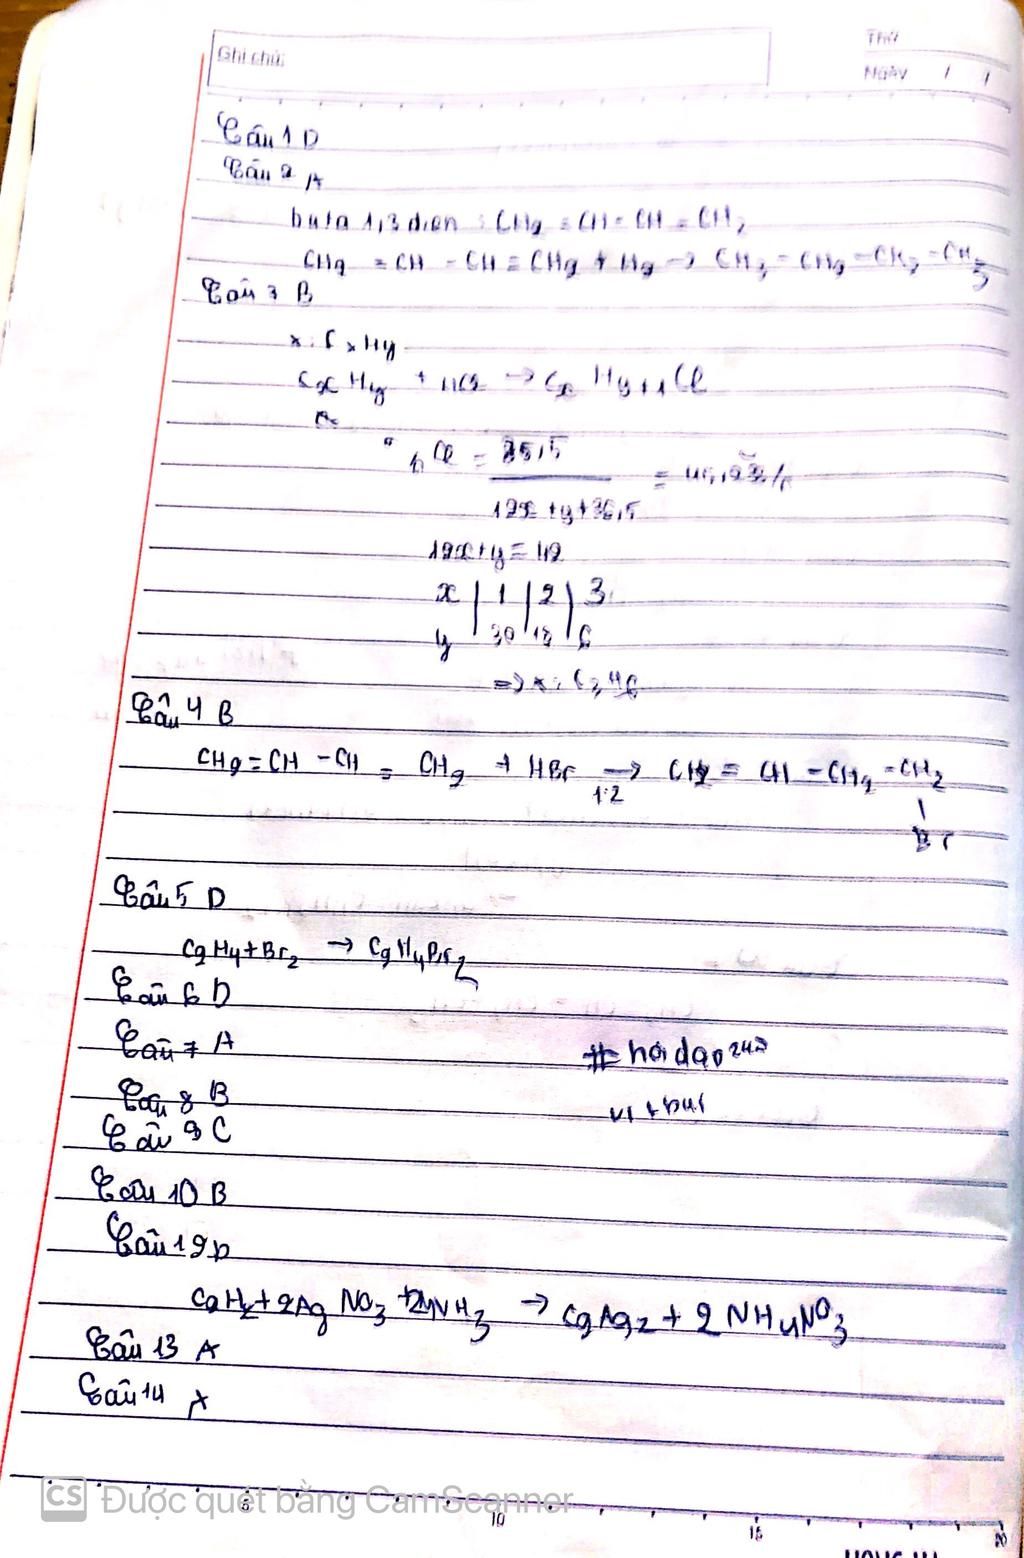 Ghi chú:
THỨ
NGÀY / /
Câu 1 D
Câu 2 A
buta 1,3 dien : CH2 = CH - CH = CH2
CH2 = CH - CH = CH2 + H2 → CH3 - CH2 - CH2 - CH3
Câu 3 B
x: CxHy
CxHy + HCl → CxHy+1Cl
% Cl = 35,5 / 12x + y + 36,5 = 45,22%
12x + y = 42
x | 1 | 2 | 3
y | 30 | 18 | 6
=> x: C3H6
Câu 4 B
CH2 = CH - CH = CH2 + HBr → 1:2 CH2 = CH - CH2 - CH2
Br
Câu 5 D
C2H4 + Br2 → C2H4Br2
Câu 6 D
Câu 7 A
# hoidap247
Câu 8 B
Câu 9 C
Câu 10 B
Câu 12 D
C2H2 + 2AgNO3 + 2NH3 → C2Ag2 + 2NH4NO3
Câu 13 A
Câu 14 A
CS Được quét bằng CamScanner
10
15
20